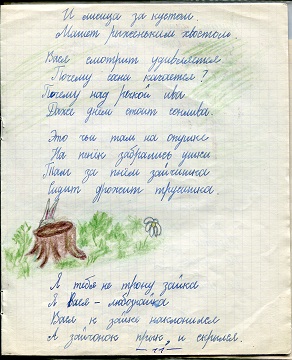 И лисица за кустом.
Машет рыженьким хвостом.
Вася смотрит удивляется
Почему сосна качается?
Почему над рекой ива
Даже днём стоит сонлива.
Это чьи там на опушке
На пенёк забрались ушки
Там за пнём зайчишка
Сидит дрожит трусишка
Я тебя не трону зайка
Я Вася - любознайка
Вася к зайке наклонился
А зайчонок прыг и скрылся.